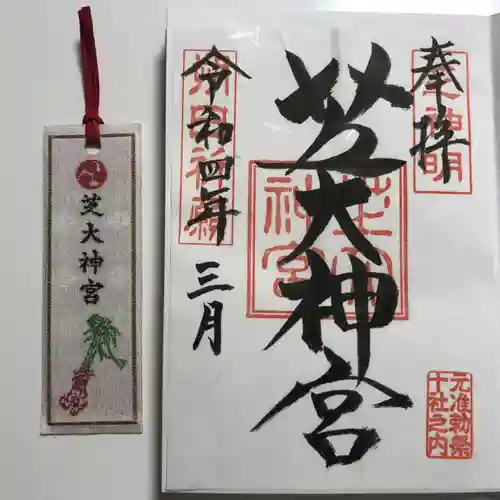 奉拝
芝大神宮
令和四年
三月
芝大神宮
元准勅祭
十社之内
芝大神宮